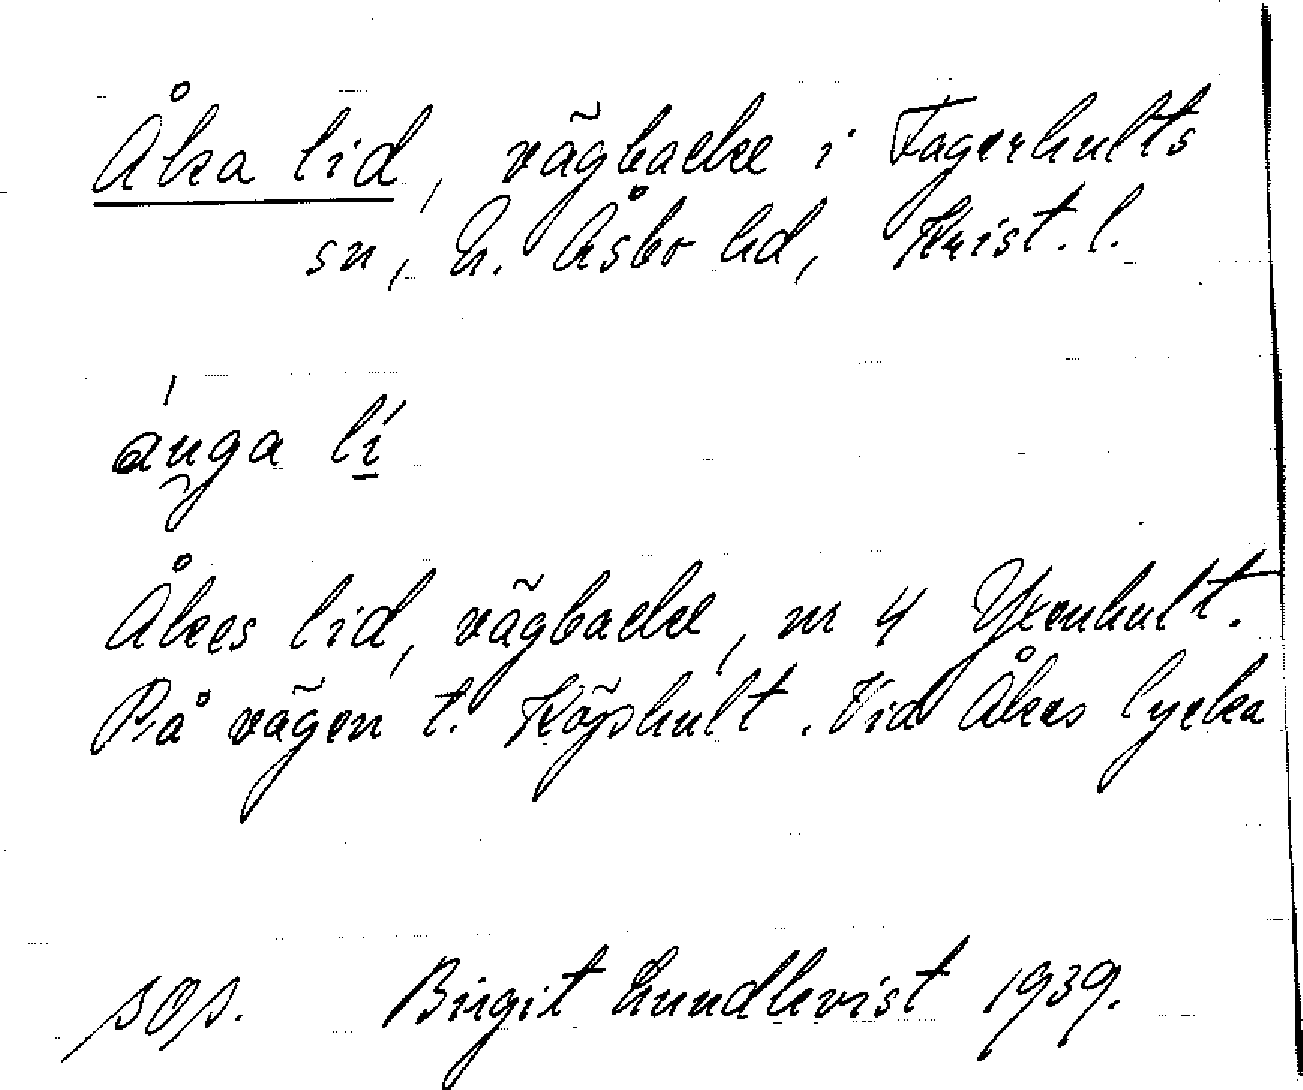 Åka lid, vägbacke i Fagerhults
sn, N. Åsbo hd, Krist. l.
ånga lí
Åkes lid, vägbacke, nr 4 Yxenhult.
På vägen t. Köpshult. Vid Åkes lycka
sos. Birgit Lundkvist 1939.